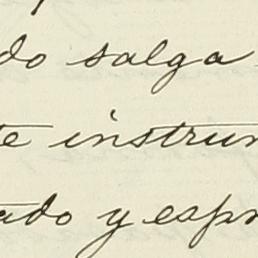 do salga
te instru
ado y esp